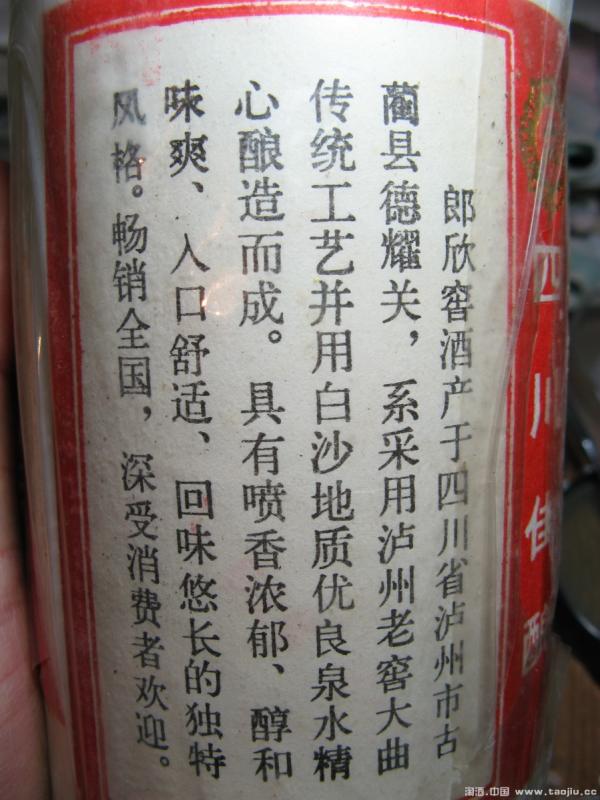 四川佳
郎欣窖酒产于四川省泸州市古
蔺县德耀关，系采用泸州老窖大曲
传统工艺并用白沙地质优良泉水精
心酿造而成。具有喷香浓郁、醇和
味爽、入口舒适、回味悠长的独特
风格。畅销全国，深受消费者欢迎。
淘酒.中国 www.taojiu.cc